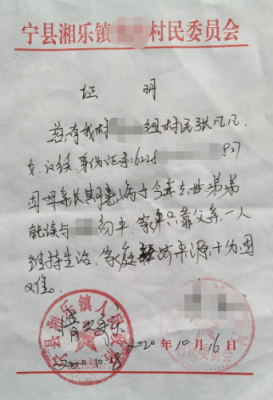 宁县湘乐镇 村民委员会
证 明
兹有我村 组村民张凡凡
女,汉族,身份证号:6225 827
因母亲长期患病于今年去世,弟弟
就读与 初中,家中只靠父亲一人
维持生活,家庭经济来源十分困
难。
2020年10月16日
宁县湘乐镇人
2020.10.